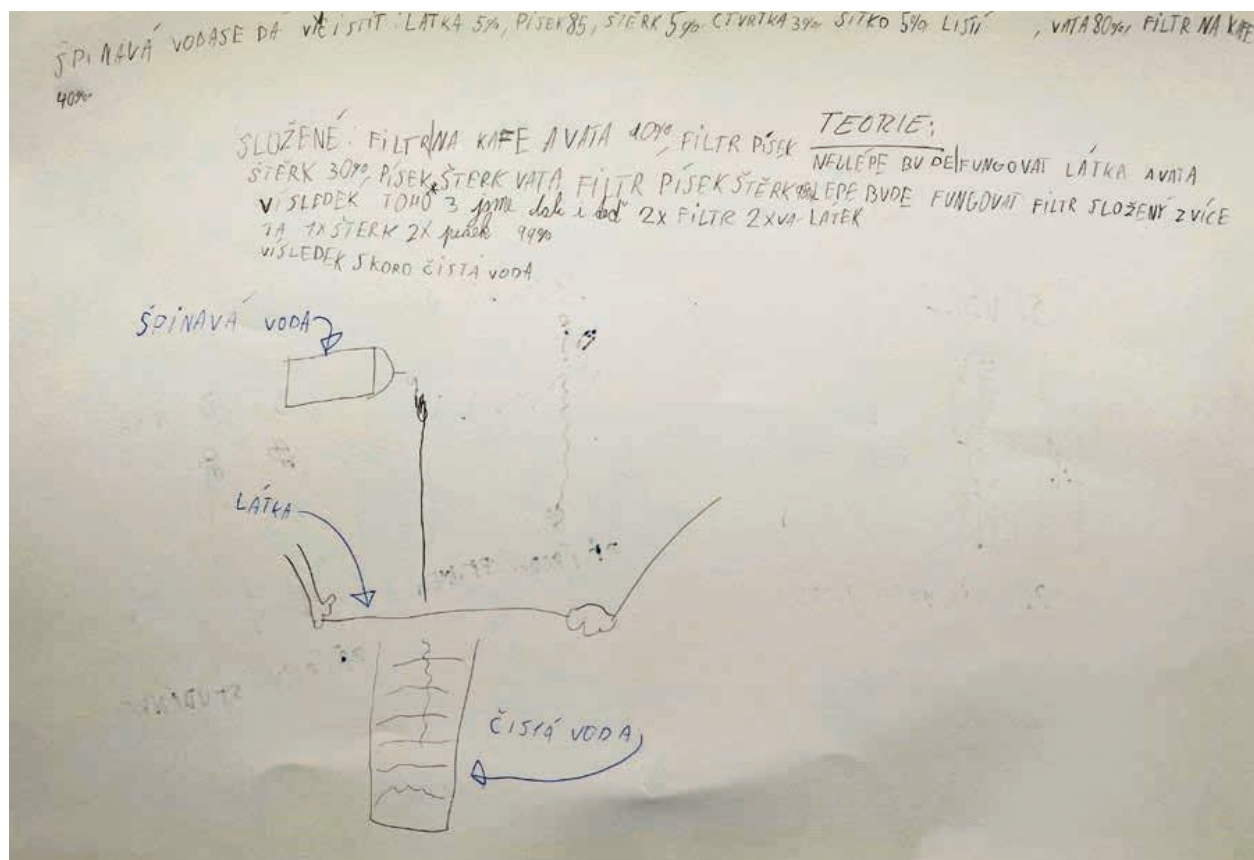 ŠPINAVÁ VODA SE DÁ VIČISTIT: LÁTKA 5%, PÍSEK 85, ŠTĚRK 5% ČTVRTKA 3% SÍTKO 5% LISTÍ , VATA 80%, FILTR NA KAFE
40%
SLOŽENÉ: FILTR NA KAFE A VATA 10%, FILTR PÍSEK
ŠTĚRK 30%, PÍSEK, ŠTERK VATA FILTR PÍSEK ŠTĚRK
VÍSLEDEK TOHO 3 jsme dali 2X FILTR 2XVA-
TA 1X ŠTERK 2X písek 99%
VÍSLEDEK SKORO ČISTÁ VODA
TEORIE:
NELLÉPE BUDE FUNGOVAT LÁTKA A VATA
LEPE BUDE FUNGOVAT FILTR SLOŽENÝ Z VÍCE
LÁTEK
ŠPINAVÁ VODA
LÁTKA
ČISTÁ VODA